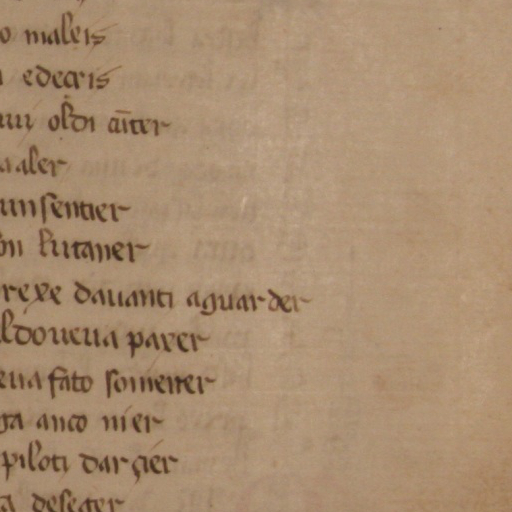 o maleis
edecris
oldi aīter
a aler
unsentier
lutaner
rexe dauanti aguarder
ldoueua paxer
eua fato someter
ga anco nier
piloti darçier
deseger